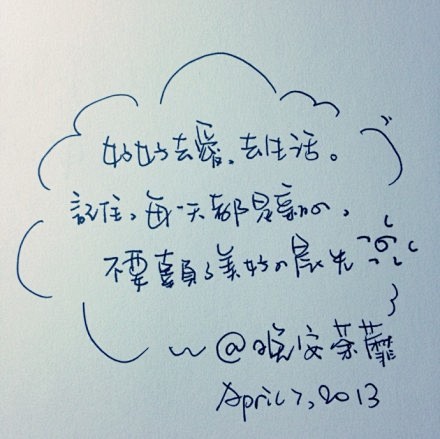 好好去愛,去生活。
記住,每一天都是新の,
不要辜負了美好の晨光
~ @晚安荼蘼
April 7, 2013